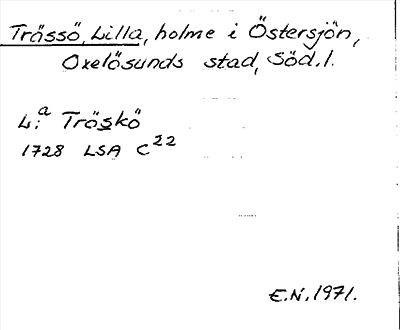 Trässö, Lilla, holme i Östersjön,
Oxelösunds stad, Söd.l.
L:a Träskö
1728 LSA C22
E.N. 1971.